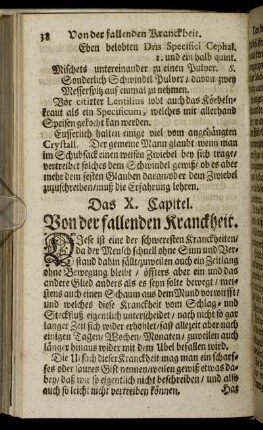 38 Von der fallenden Kranckheit.
Eben belobten Dñs Specifici Cephal.
1. und ein halb quint.
Mischets untereinander zu einen Pulver. &.
Sonderlich Schwindel Pulver / davon zwey
Messerspitz auf einmal zu nehmen.
Vor citirter Lentilius lobt auch das Körbeln-
kraut als ein Specificum, welches mit allerhand
Speisen gekocht kan werden.
Eusserlich halten einige viel vom angehängten
Crystall. Der gemeine Mann glaubt wenn man
im Schubsack einen weisen Zwiebel bey sich trage /
vertreibet solches dem Schwindel gewiß / ob es aber
mehr dem festen Glauben daran / oder dem Zwiebel
zuzuschreiben / muß die Erfahrung lehren.
Das X. Capitel.
Von der fallenden Kranckheit.
DIese ist eine der schweresten Kranckheiten /
da der Mensch schnell ohne Sinn und Ver-
stand dahin fällt / zuweilen auch ein Zeitlang
ohne Bewegung bleibt / öffters aber ein und das
andere Glied anders als es seyn solte bewegt / mei-
stens auch einen Schaum aus dem Mund vorwirfft /
und welches diese Kranckheit vom Schlag- und
Steckfluß eigentlich unterscheidet / nach nicht so gar
langer Zeit sich wider erhohlet / fast allezeit aber nach
einigen Tagen / Wochen / Monaten / zuweilen auch
länger hinaus wider mit dem Ubel befallen wird.
Die Ursach dieser Kranckheit mag man ein scharf-
fes oder saures Gifft nennen / weilen gewiß etwas da-
bey / daß wir so eigentlich nicht beschreiben / und also
auch so leicht nicht vertreiben können. Das